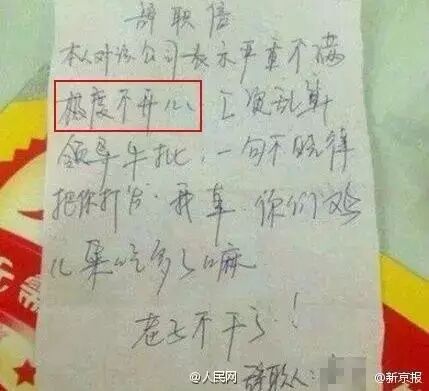 辞职信
本人对该公司表示严重不满
极度不开心、工资乱算
领导牛批、一句不晓得
把你打发、我草、你们鸡
儿吃多了嘛
老子不干了！
辞职人：
需
@人民网 @新京报